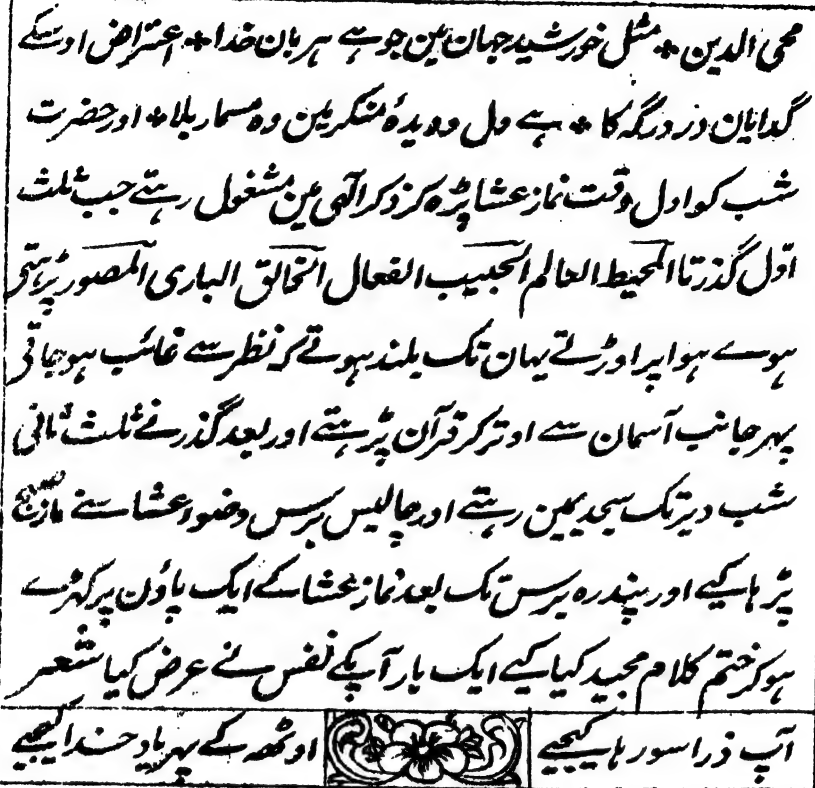 محی الدین * مثل خورشید جہان مین جو ہے ہربان خدا * اعتراض اوسکے
گدایان در درگہ کا * ہے دل و دیدۂ منکر مین وہ مسمار بلا * اور حضرت
شب کو اول وقت نماز عشا پڑہ کر ذکر الٰہی مین مشغول رہتے جب ثلث
اوّل گذرتا المحیط العالم الحبیب الفعال الخالق الباری المصور پڑہتی
ہوے ہوا پر اوڑتے یہان تک بلند ہوتے کہ نظر سے غائب ہو جاتی
پہر جانب آسمان سے اوتر کر قرآن پڑہتے اور بعد گذرنے ثلث ثانی
شب دیر تک سجدیمین رہتے اور چالیس برس وضوء عشا سے نماز صبح
پڑہا کیے اور پندرہ برس تک بعد نماز عشا کے ایک پاؤن پر کہڑے
ہو کر ختم کلام مجید کیا کیے ایک بار آپکے نفس نے عرض کیا شعر
آپ ذرا سو رہا کیجیے اوٹھہ کے پہر یاد خدا کیجیے